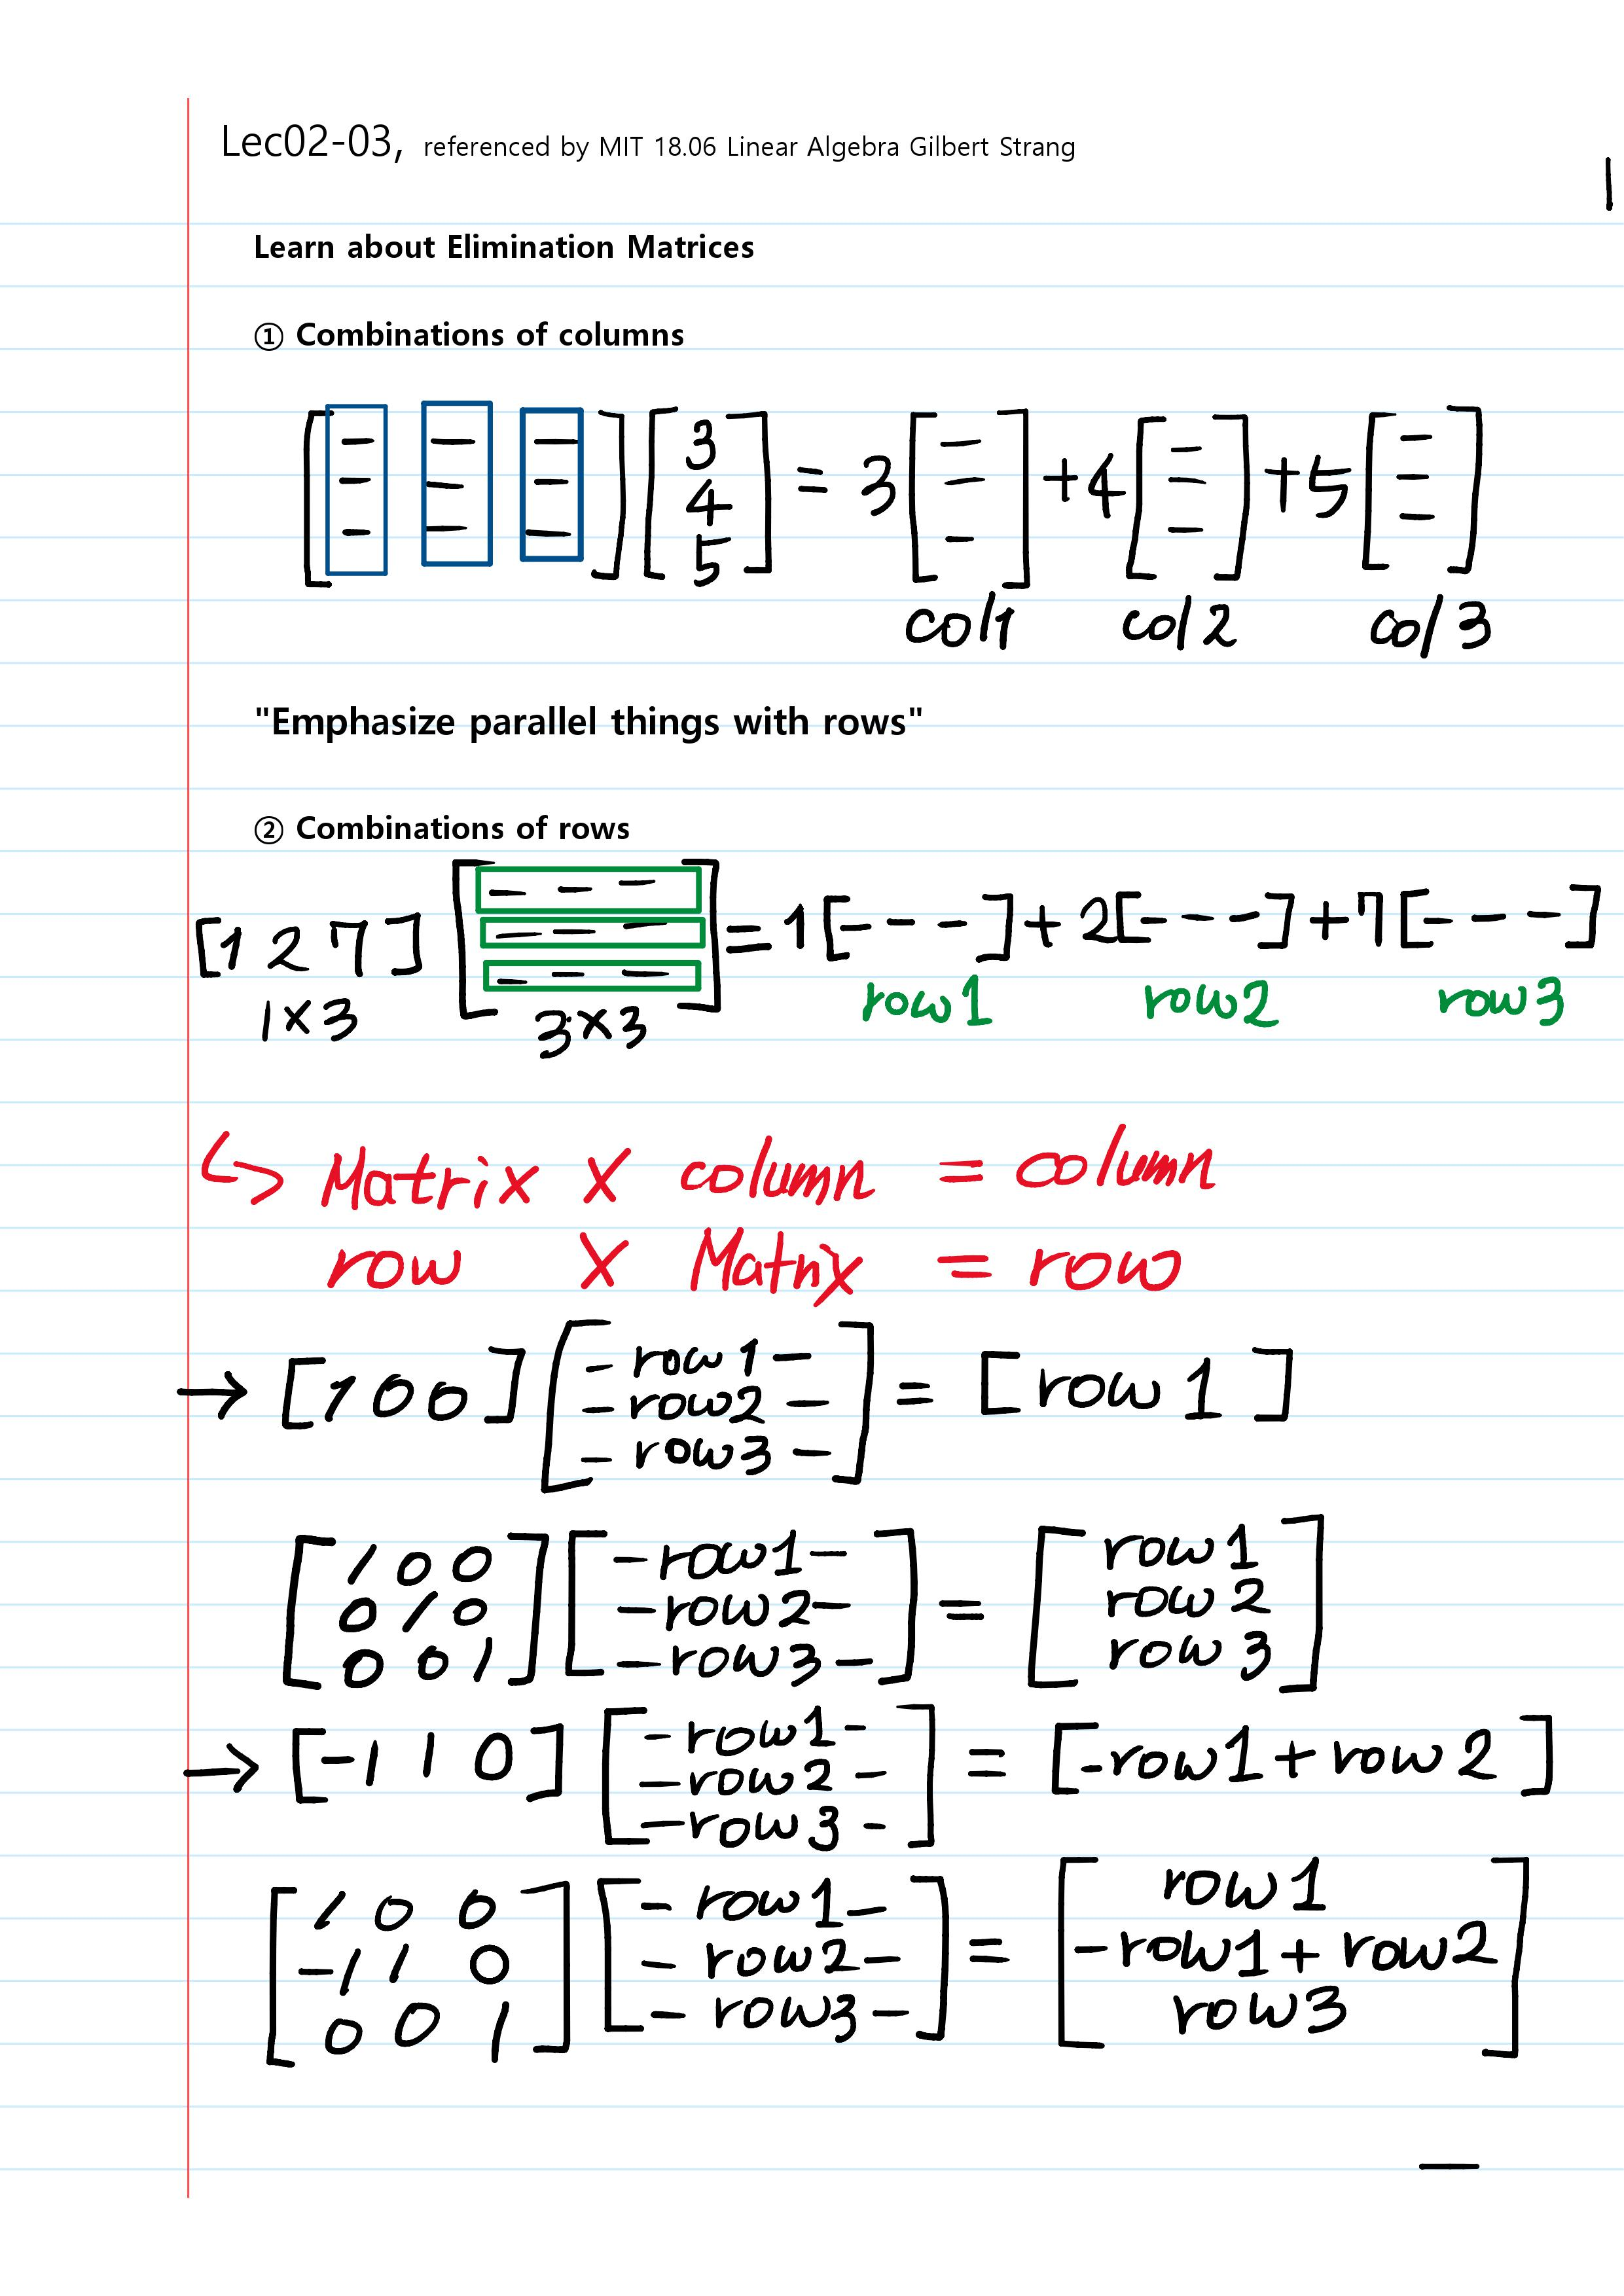 Lec02-03, referenced by MIT 18.06 Linear Algebra Gilbert Strang
Learn about Elimination Matrices
① Combinations of columns
[ – – – ; – – – ; – – – ] [ 3 ; 4 ; 5 ] = 3 [ – ; – ; – ] + 4 [ – ; – ; – ] + 5 [ – ; – ; – ]
col1 col2 col3
"Emphasize parallel things with rows"
② Combinations of rows
[1 2 7] [ – – – ; – – – ; – – – ] = 1 [– – –] + 2 [– – –] + 7 [– – –]
1×3 3×3 row1 row2 row3
↳ Matrix X column = column
row X Matrix = row
→ [1 0 0] [ – row1 – ; – row2 – ; – row3 – ] = [row 1]
[ 1 0 0 ; 0 1 0 ; 0 0 1 ] [ – row1 – ; – row2 – ; – row3 – ] = [ row1 ; row2 ; row3 ]
→ [-1 1 0] [ – row1 – ; – row2 – ; – row3 – ] = [-row1 + row2]
[ 1 0 0 ; -1 1 0 ; 0 0 1 ] [ – row1 – ; – row2 – ; – row3 – ] = [ row1 ; -row1 + row2 ; row3 ]